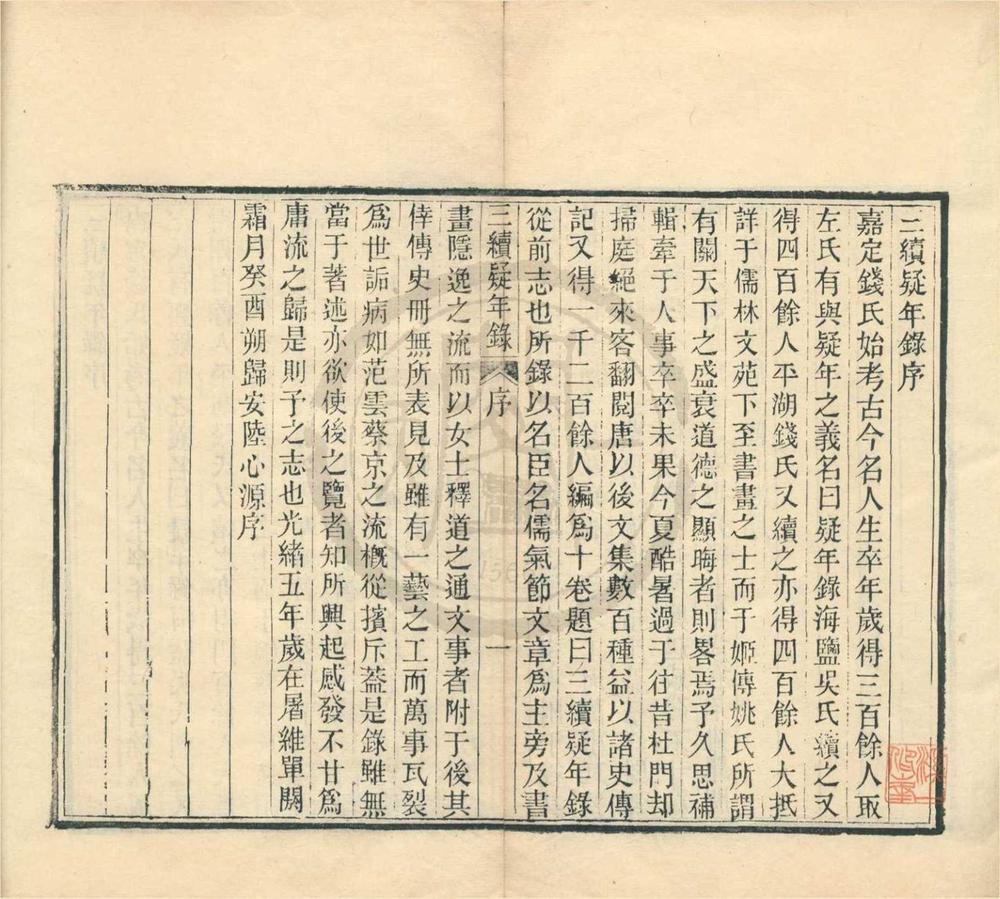 三續疑年錄序
嘉定錢氏始考古今名人生卒年歲得三百餘人取
左氏有與疑年之義名曰疑年錄海鹽吳氏續之又
得四百餘人平湖錢氏又續之亦得四百餘人大抵
詳于儒林文苑下至書畫之士而于姬傳姚氏所謂
有關天下之盛衰道德之顯晦者則畧焉予久思補
輯牽于人事卒卒未果今夏酷暑過于往昔杜門却
掃庭絕來客翻閱唐以後文集數百種益以諸史傳
記又得一千二百餘人編爲十卷題曰三續疑年錄
從前志也所錄以名臣名儒氣節文章爲主旁及書
三續疑年錄 序 一
畫隱逸之流而以女士釋道之通文事者附于後其
倖傳史冊無所表見及雖有一藝之工而萬事瓦裂
爲世詬病如范雲蔡京之流概從擯斥葢是錄雖無
當于著述亦欲使後之覽者知所興起感發不甘爲
庸流之歸是則予之志也光緒五年歲在屠維單閼
霜月癸酉朔歸安陸心源序